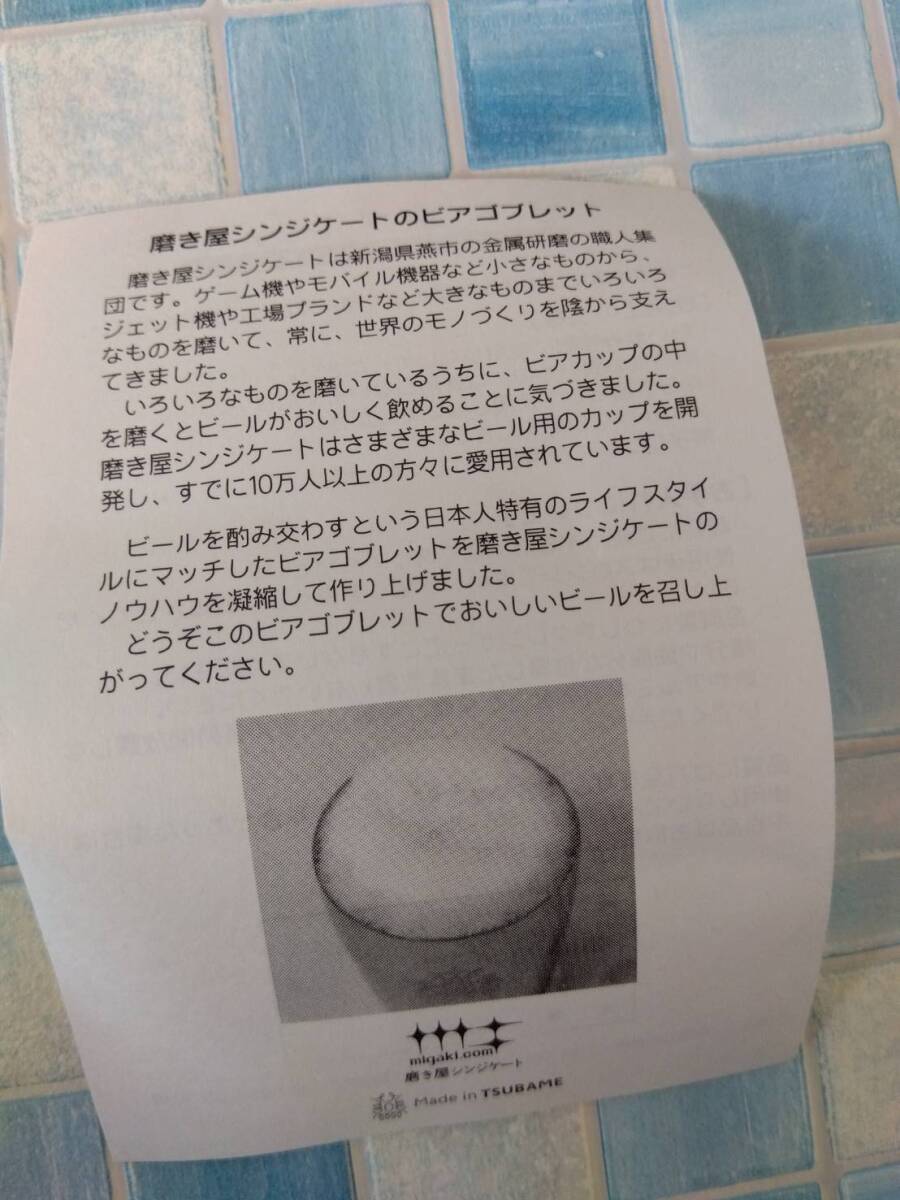 磨き屋シンジケートのビアゴブレット
磨き屋シンジケートは新潟県燕市の金属研磨の職人集
団です。ゲーム機やモバイル機器など小さなものから、
ジェット機や工場ブランドなど大きなものまでいろいろ
なものを磨いて、常に、世界のモノづくりを陰から支え
てきました。
いろいろなものを磨いているうちに、ビアカップの中
を磨くとビールがおいしく飲めることに気づきました。
磨き屋シンジケートはさまざまなビール用のカップを開
発し、すでに10万人以上の方々に愛用されています。
ビールを酌み交わすという日本人特有のライフスタイ
ルにマッチしたビアゴブレットを磨き屋シンジケートの
ノウハウを凝縮して作り上げました。
どうぞこのビアゴブレットでおいしいビールを召し上
がってください。
migaki.com
磨き屋シンジケート
Made in TSUBAME